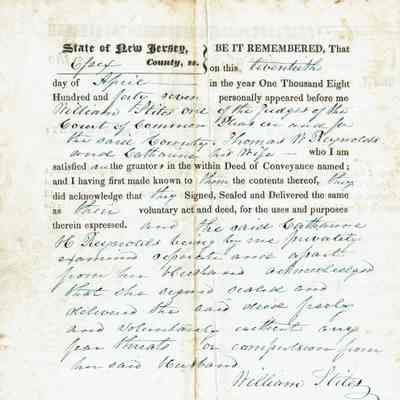 State of New Jersey, } BE IT REMEMBERED, That
Essex County, ss. } on this twentieth
day of April in the year One Thousand Eight
Hundred and forty seven personally appeared before me
William Stites one of the Judges of the
Court of Common Pleas in and for
the said County, Thomas W Reynolds
and Catharine his Wife who I am
satisfied are the grantors in the within Deed of Conveyance named;
and I having first made known to them the contents thereof, they
did acknowledge that they Signed, Sealed and Delivered the same
as their voluntary act and deed, for the uses and purposes
therein expressed. and the said Catharine
H Reynolds being by me privately
examined separate and apart
from her Husband acknowledged
that she signed sealed and
delivered the said deed freely
and voluntarily without any
fear threats or compulsion from
her said Husband
William Stites